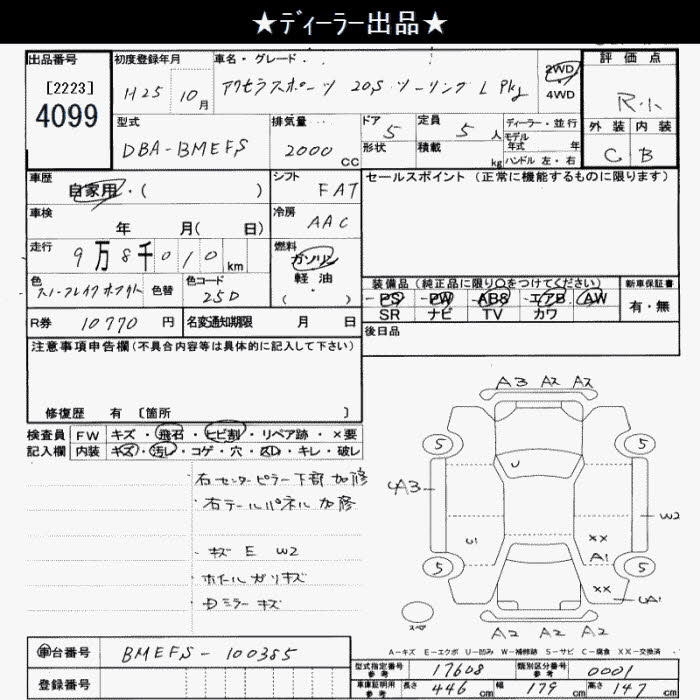 ★ディーラー出品★
出品番号
[2223]
4099
初度登録年月
H25 10月
車名・グレード
アクセラスポーツ 20S ツーリング L Pkg
2WD
4WD
評価点
R.小
外装 内装
C B
型式
DBA-BMEFS
排気量
2000 CC
ドア 5
形状
定員 5 人
積載 kg
ディーラー・並行
モデル
年式 年
ハンドル 左・右
車歴
自家用・( )
シフト
FAT
セールスポイント (正常に機能するものに限ります)
車検
年 月( 日)
冷房
AAC
走行
9万8千010km
燃料
ガソリン
軽油
( ・ )
色
スノーフレイクホワイト
色替
色コード
25D
装備品 (純正品に限り○をつけてください)
新車保証書
PS PW ABS エアB AW
有・無
SR ナビ TV カワ
R券 10770 円
名変通知期限 月 日
後日品
注意事項申告欄(不具合内容等は具体的に記入して下さい)
修復歴 有 〔箇所 〕
検査員 FW キズ・飛石・ヒビ割・リペア跡・×要
記入欄 内装 キズ・汚レ・コゲ・穴・スレ・キレ・破レ
右センターピラー下部 加修
右テールパネル 加修
キズ E W2
ホイールガリキズ
ミラーキズ
A3 A2 A2
5 5
U
A3
W2
U1
XX
A1
5 5
XX
A1
スペア
A2 A2 A2
A-キズ E-エクボ U-凹み W-補修跡 S-サビ C-腐食 XX-交換済
車台番号
BMEFS-100385
登録番号
型式指定番号
参考
17608
類別区分番号
参考
0001
車庫証明用
参考
長さ 446 cm 幅 179 cm 高さ 147 cm